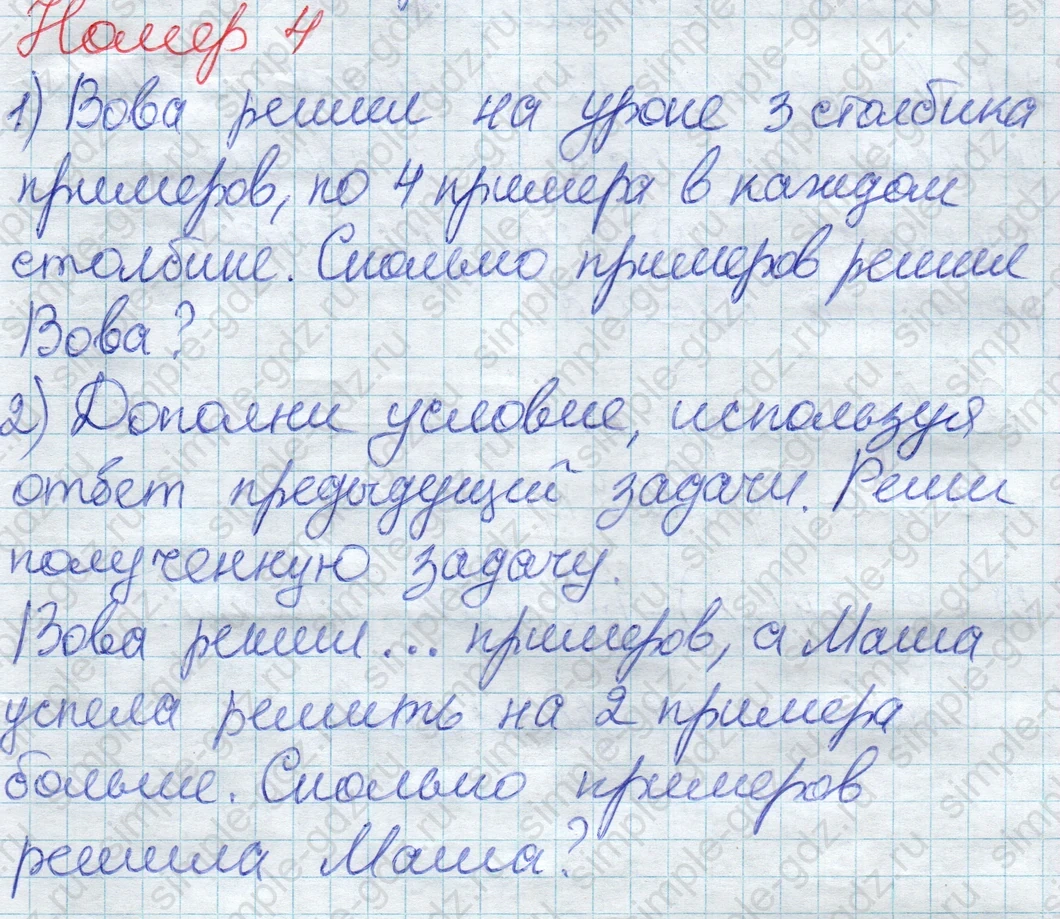 Номер 4
1) Вова решил на уроке 3 столбика
примеров, по 4 примера в каждом
столбике. Сколько примеров решил
Вова?
2) Дополни условие, используя
ответ предыдущей задачи. Реши
полученную задачу.
Вова решил... примеров, а Маша
успела решить на 2 примера
больше. Сколько примеров
решила Маша?
simple-gdz.ru